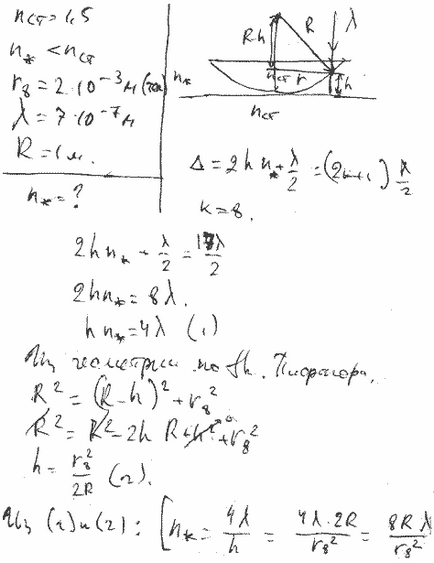 n_ст = 1,5
n_* < n_ст
r_8 = 2·10^-3 м
λ = 7·10^-7 м
R = 1 м.
n_* = ?
R-h R λ
n_* n_ст r h
n_ст
Δ = 2hn_* + λ/2 = (2k+1) λ/2
k = 8.
2hn_* + λ/2 = 17λ/2
2hn_* = 8λ.
hn_* = 4λ (1)
Из геометрии по th. Пифагора.
R² = (R-h)² + r_8²
R² = R² - 2hR + h² + r_8²
h = r_8²/2R (2).
Из (1) и (2): [n_* = 4λ/h = 4λ·2R/r_8² = 8Rλ/r_8²